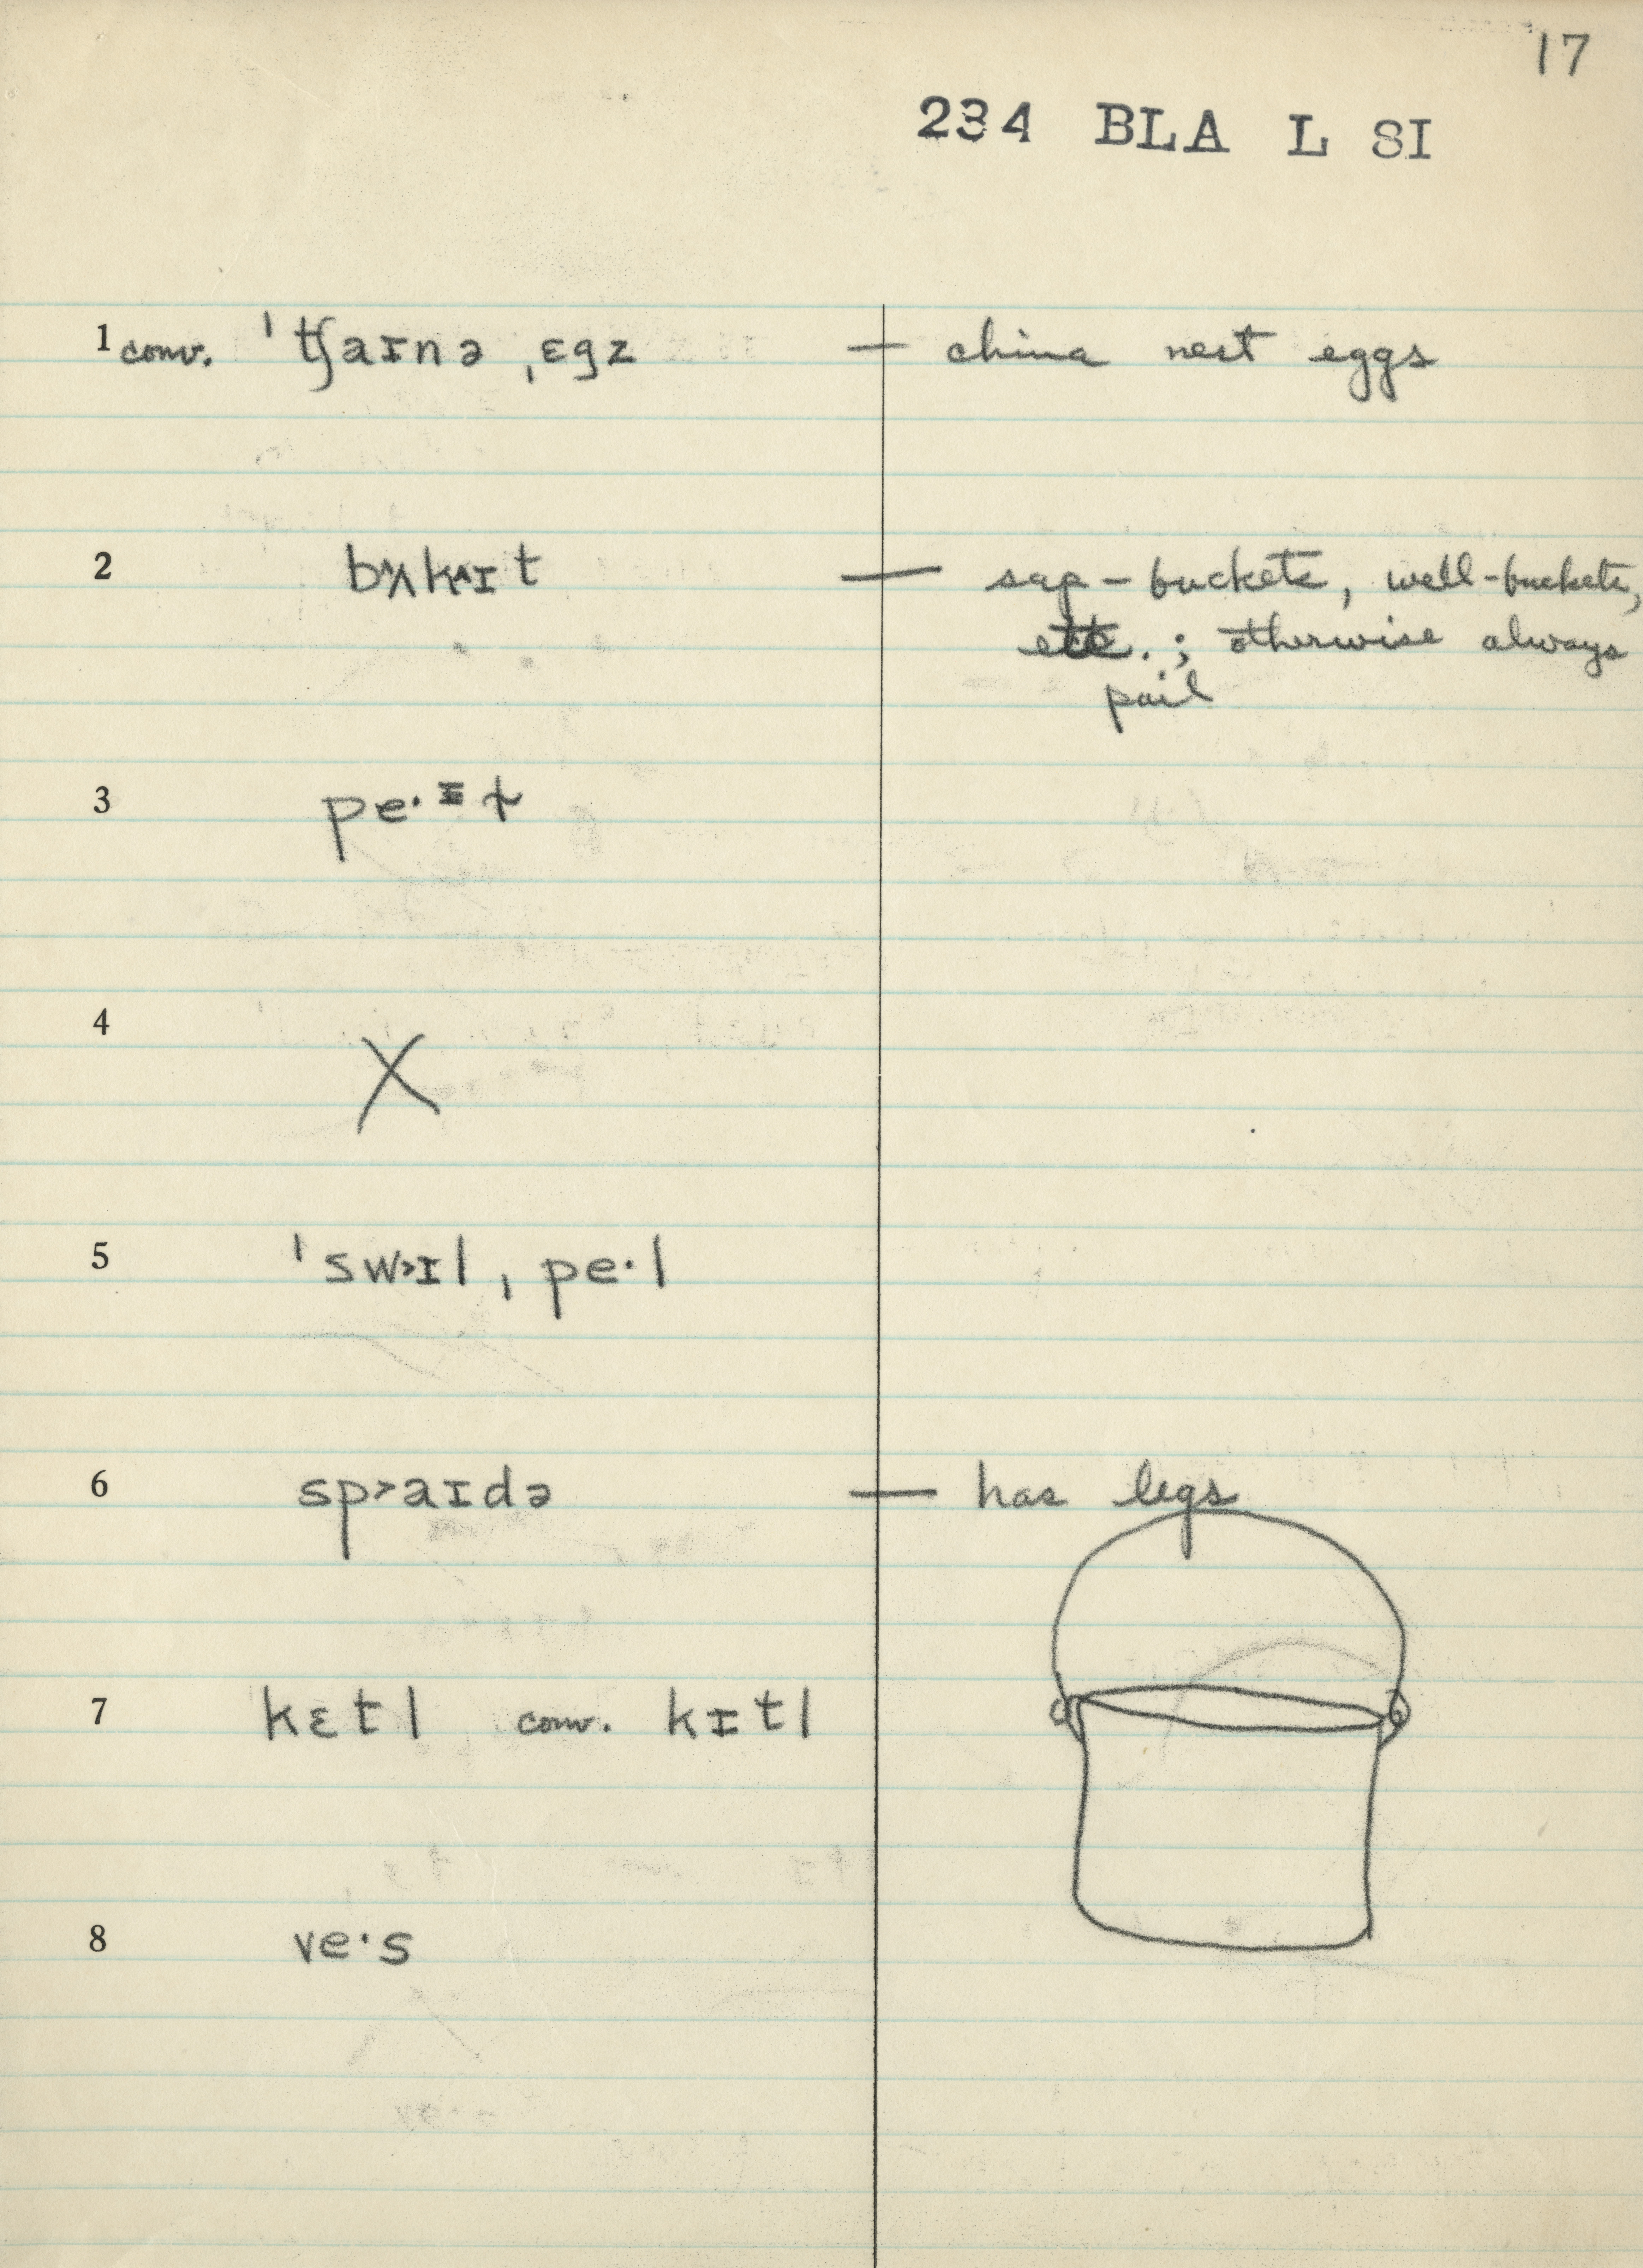 17
234 BLA L SI
1 conv. ˈʧaɪnə ˌɛgz — china nest eggs
2 bʌkɪt — sap-buckets, well-buckets,
etc. ; otherwise always
pail
3 pe·ɪɫ
4 X
5 ˈswɪl ˌpe·l
6 sp˃aɪdə — has legs
7 kɛtl conv. kɪtl
8 ve·s